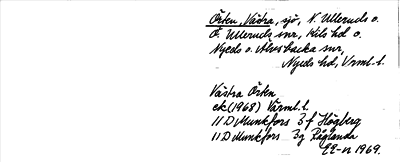 Örten, Västra, sjö, N. Ullerud s. o.
Ö. Ullerud snr, Kils hd o.
Nyeds o. Alsters backa snr,
Nyeds hd, Vrml. l.
Västra Örten
ek (1968) Värml. l.
11D Munkfors 3 f Högberg
11D Munkfors 3g Råglanda
1969.